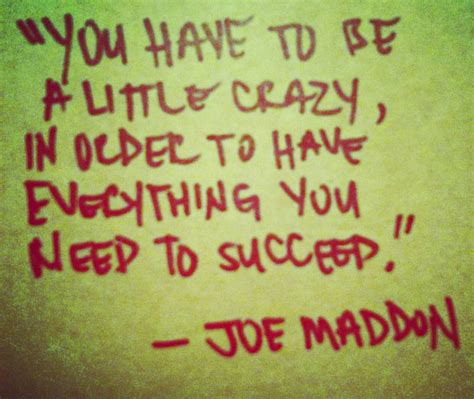 "YOU HAVE TO BE
A LITTLE CRAZY,
IN ORDER TO HAVE
EVERYTHING YOU
NEED TO SUCCEED."
— JOE MADDON